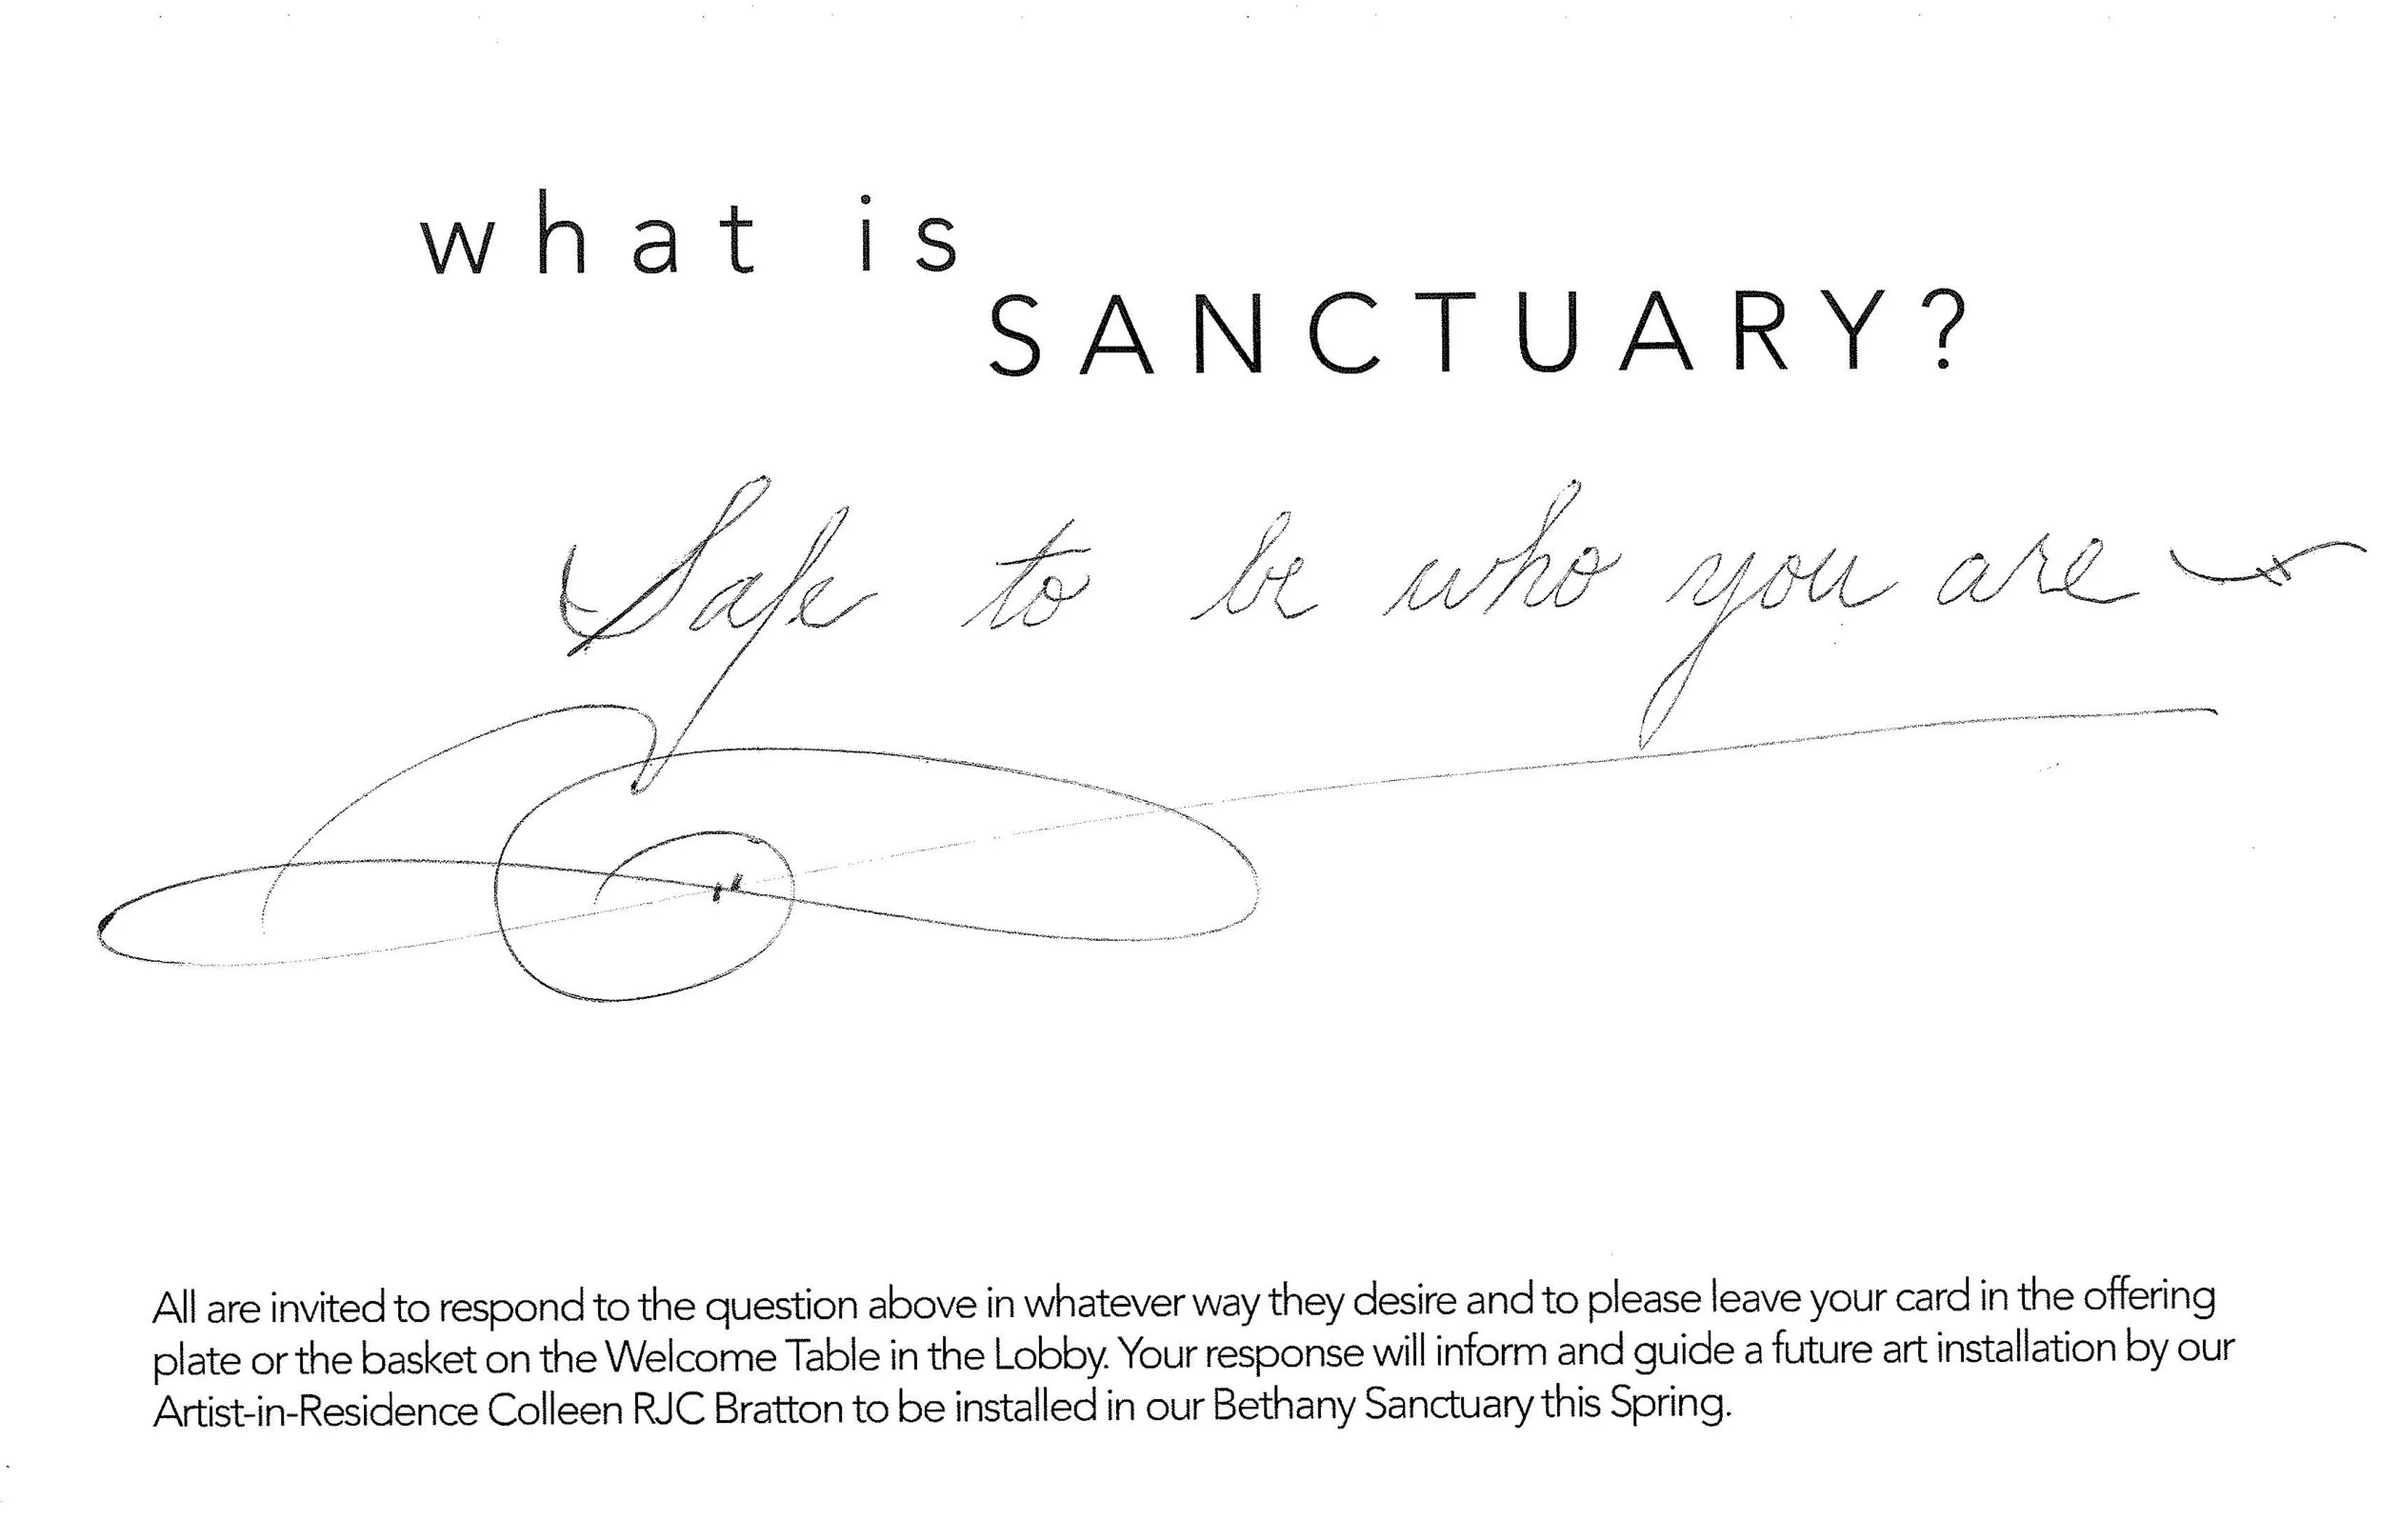 what is
SANCTUARY?
Safe to be who you are
All are invited to respond to the question above in whatever way they desire and to please leave your card in the offering
plate or the basket on the Welcome Table in the Lobby. Your response will inform and guide a future art installation by our
Artist-in-Residence Colleen RJC Bratton to be installed in our Bethany Sanctuary this Spring.